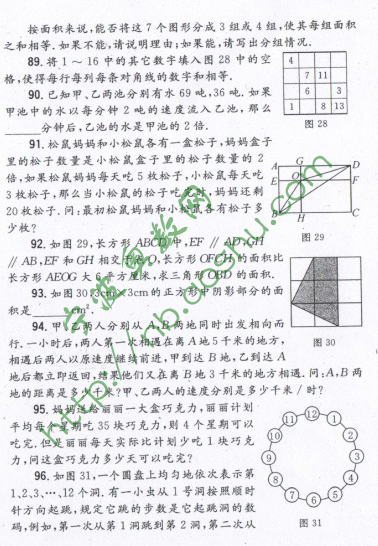 按面积来说,能否将这7个图形分成3组或4组,使其每组面积
之和相等.如果不能,请说明理由;如果能,请写出分组情况.
89. 将1～16中的其它数字填入图28中的空
格,使得每行每列每条对角线的数字和相等.
90. 已知甲、乙两池分别有水69吨,36吨.如果
甲池中的水以每分钟2吨的速度流入乙池,那么
______分钟后,乙池的水是甲池的2倍.
4
7 11
6 3
1 8 13
图28
91. 松鼠妈妈和小松鼠各有一盒松子,妈妈盒子
里的松子数量是小松鼠盒子里的松子数量的2
倍,如果松鼠妈妈每天吃5枚松子,小松鼠每天吃
3枚松子,那么当小松鼠的松子吃完时,妈妈还剩
20枚松子.问:最初松鼠妈妈和小松鼠各有松子多
少枚?
A G D
E O F
B H C
图29
92. 如图29,长方形ABCD中,EF∥AD,GH
∥AB,EF和GH相交于O,长方形OFCH的面积比
长方形AEOG大6平方厘米,求三角形OBD的面积.
93. 如图30,3cm×3cm的正方形中阴影部分的面
积是______cm².
图30
94. 甲、乙两人分别从A、B两地同时出发相向而
行.一小时后,两人第一次相遇在离A地5千米的地方,
相遇后两人以原速度继续前进,甲到达B地,乙到达A
地后都立即返回,结果他们又在离B地3千米的地方相遇.问:A,B两
地的距离是多少千米?甲、乙两人的速度分别是多少千米/时?
95. 妈妈送给丽丽一大盒巧克力,丽丽计划
平均每个星期吃35块巧克力,则4个星期可以
吃完.但是丽丽每天实际比计划少吃1块巧克
力,问这盒巧克力多少天可以吃完?
96. 如图31,一个圆盘上均匀地依次表示第
1,2,3,…,12个洞.有一小虫从1号洞按照顺时
针方向起跳,规定它跳的步数是它起跳洞的数
码,例如,第一次从第1洞跳到第2洞,第二次从
12 1 2 3 4 5 6 7 8 9 10 11
图31
宁波奥数网
http://nb.aoshu.com